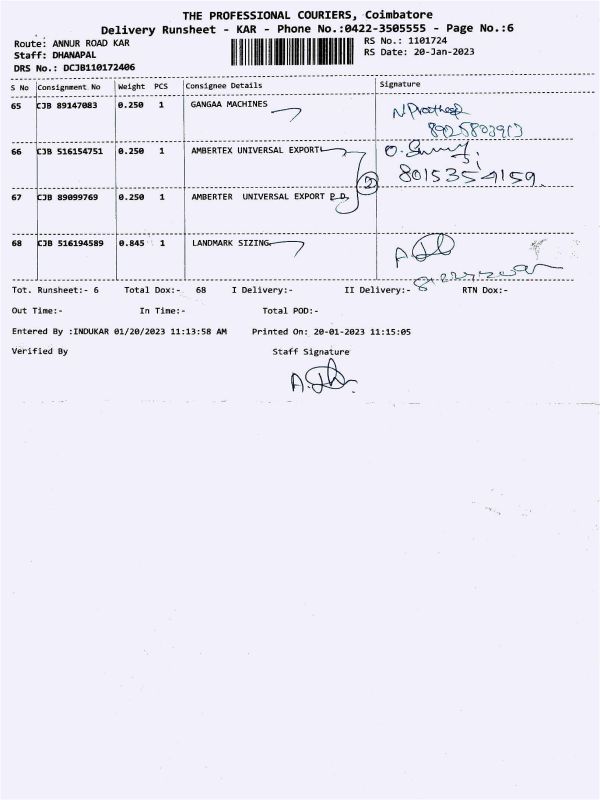 THE PROFESSIONAL COURIERS, Coimbatore
Delivery Runsheet - KAR - Phone No.:0422-3505555 - Page No.:6
Route: ANNUR ROAD KAR RS No.: 1101724
Staff: DHANAPAL RS Date: 20-Jan-2023
DRS No.: DCJB110172406
S No Consignment No Weight PCS Consignee Details Signature
65 CJB 89147083 0.250 1 GANGAA MACHINES
66 CJB 516154751 0.250 1 AMBERTEX UNIVERSAL EXPORT
8015354159
2
67 CJB 89099769 0.250 1 AMBERTER UNIVERSAL EXPORT P D
68 CJB 516194589 0.845 1 LANDMARK SIZING
Tot. Runsheet:- 6 Total Dox:- 68 I Delivery:- II Delivery:- RTN Dox:-
Out Time:- In Time:- Total POD:-
Entered By :INDUKAR 01/20/2023 11:13:58 AM Printed On: 20-01-2023 11:15:05
Verified By Staff Signature